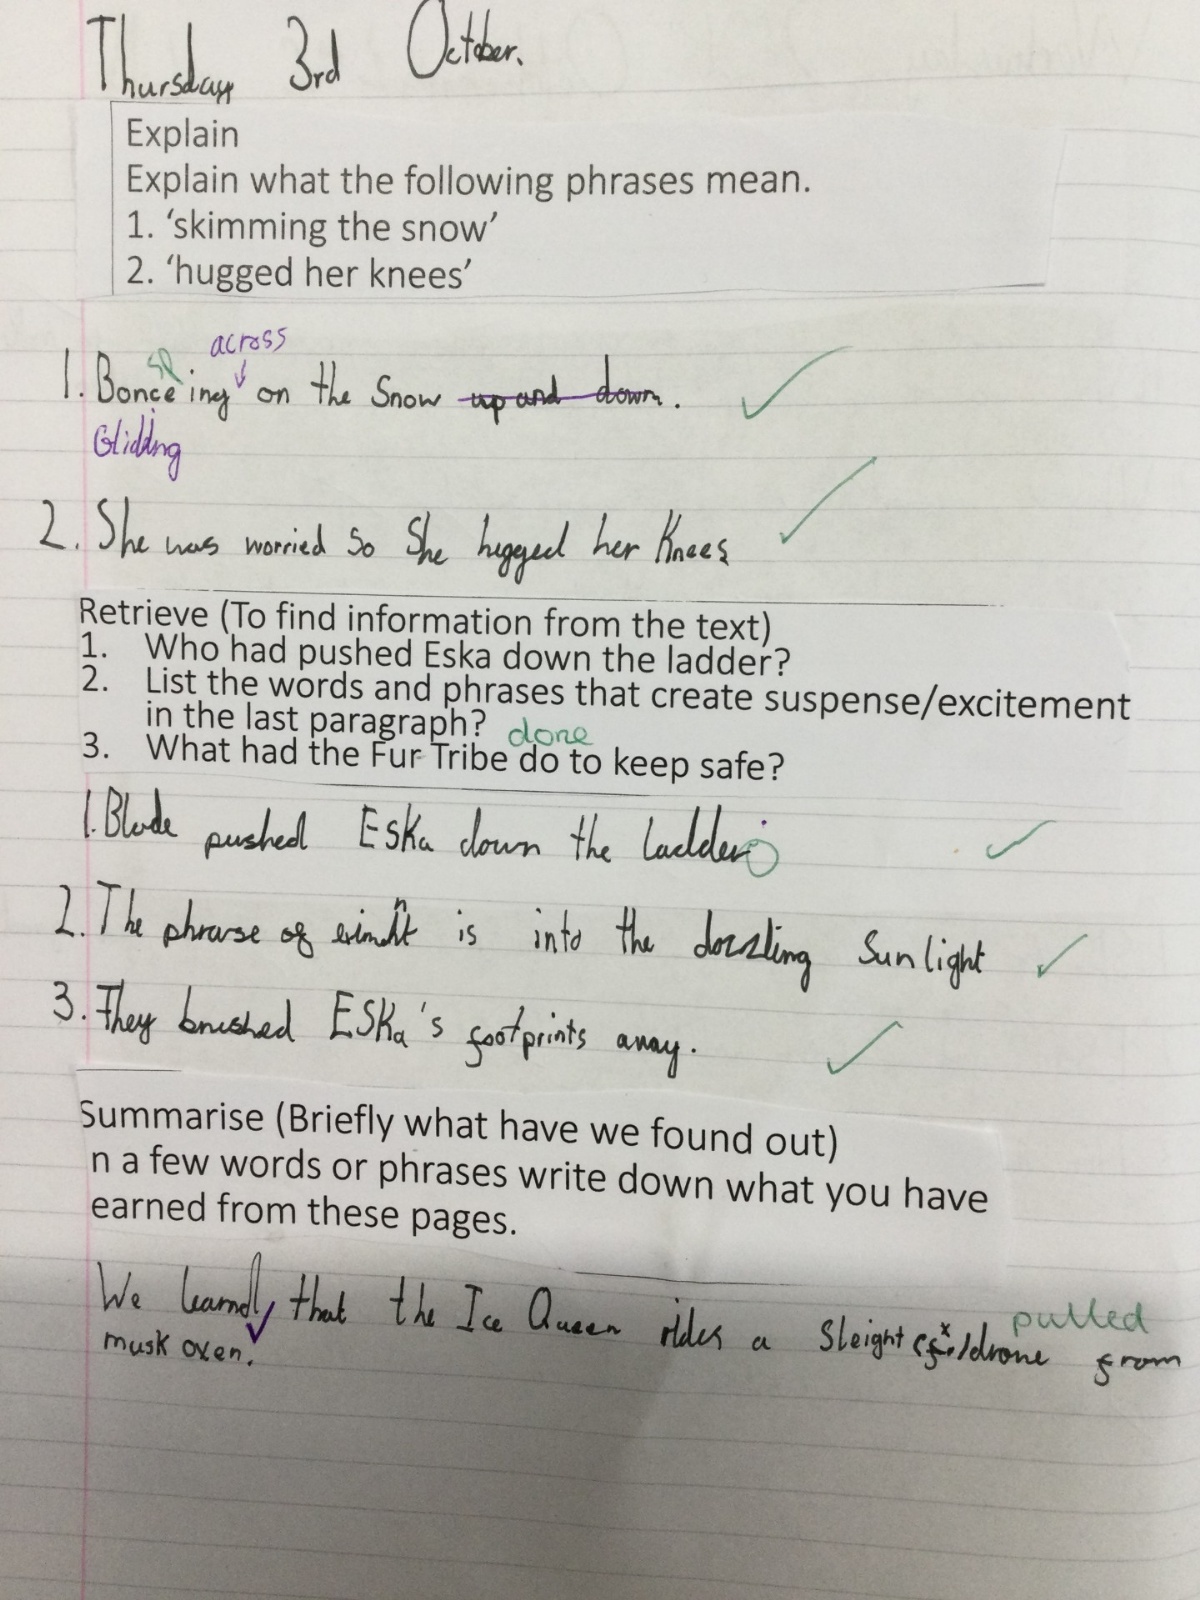 Thursday 3rd October.
Explain
Explain what the following phrases mean.
1. ‘skimming the snow’
2. ‘hugged her knees’
sp across
1. Bonceing on the Snow up and down.
Gliding
2. She was worried So She hugged her Knees
Retrieve (To find information from the text)
1. Who had pushed Eska down the ladder?
2. List the words and phrases that create suspense/excitement
in the last paragraph? done
3. What had the Fur Tribe do to keep safe?
1. Blade pushed Eska down the ladder
2. The phrase of is into the dazzling Sunlight
3. They brushed Eska's footprints away.
Summarise (Briefly what have we found out)
n a few words or phrases write down what you have
earned from these pages.
pulled
We learnd that the Ice Queen rides a Sleight drone from
musk oxen.